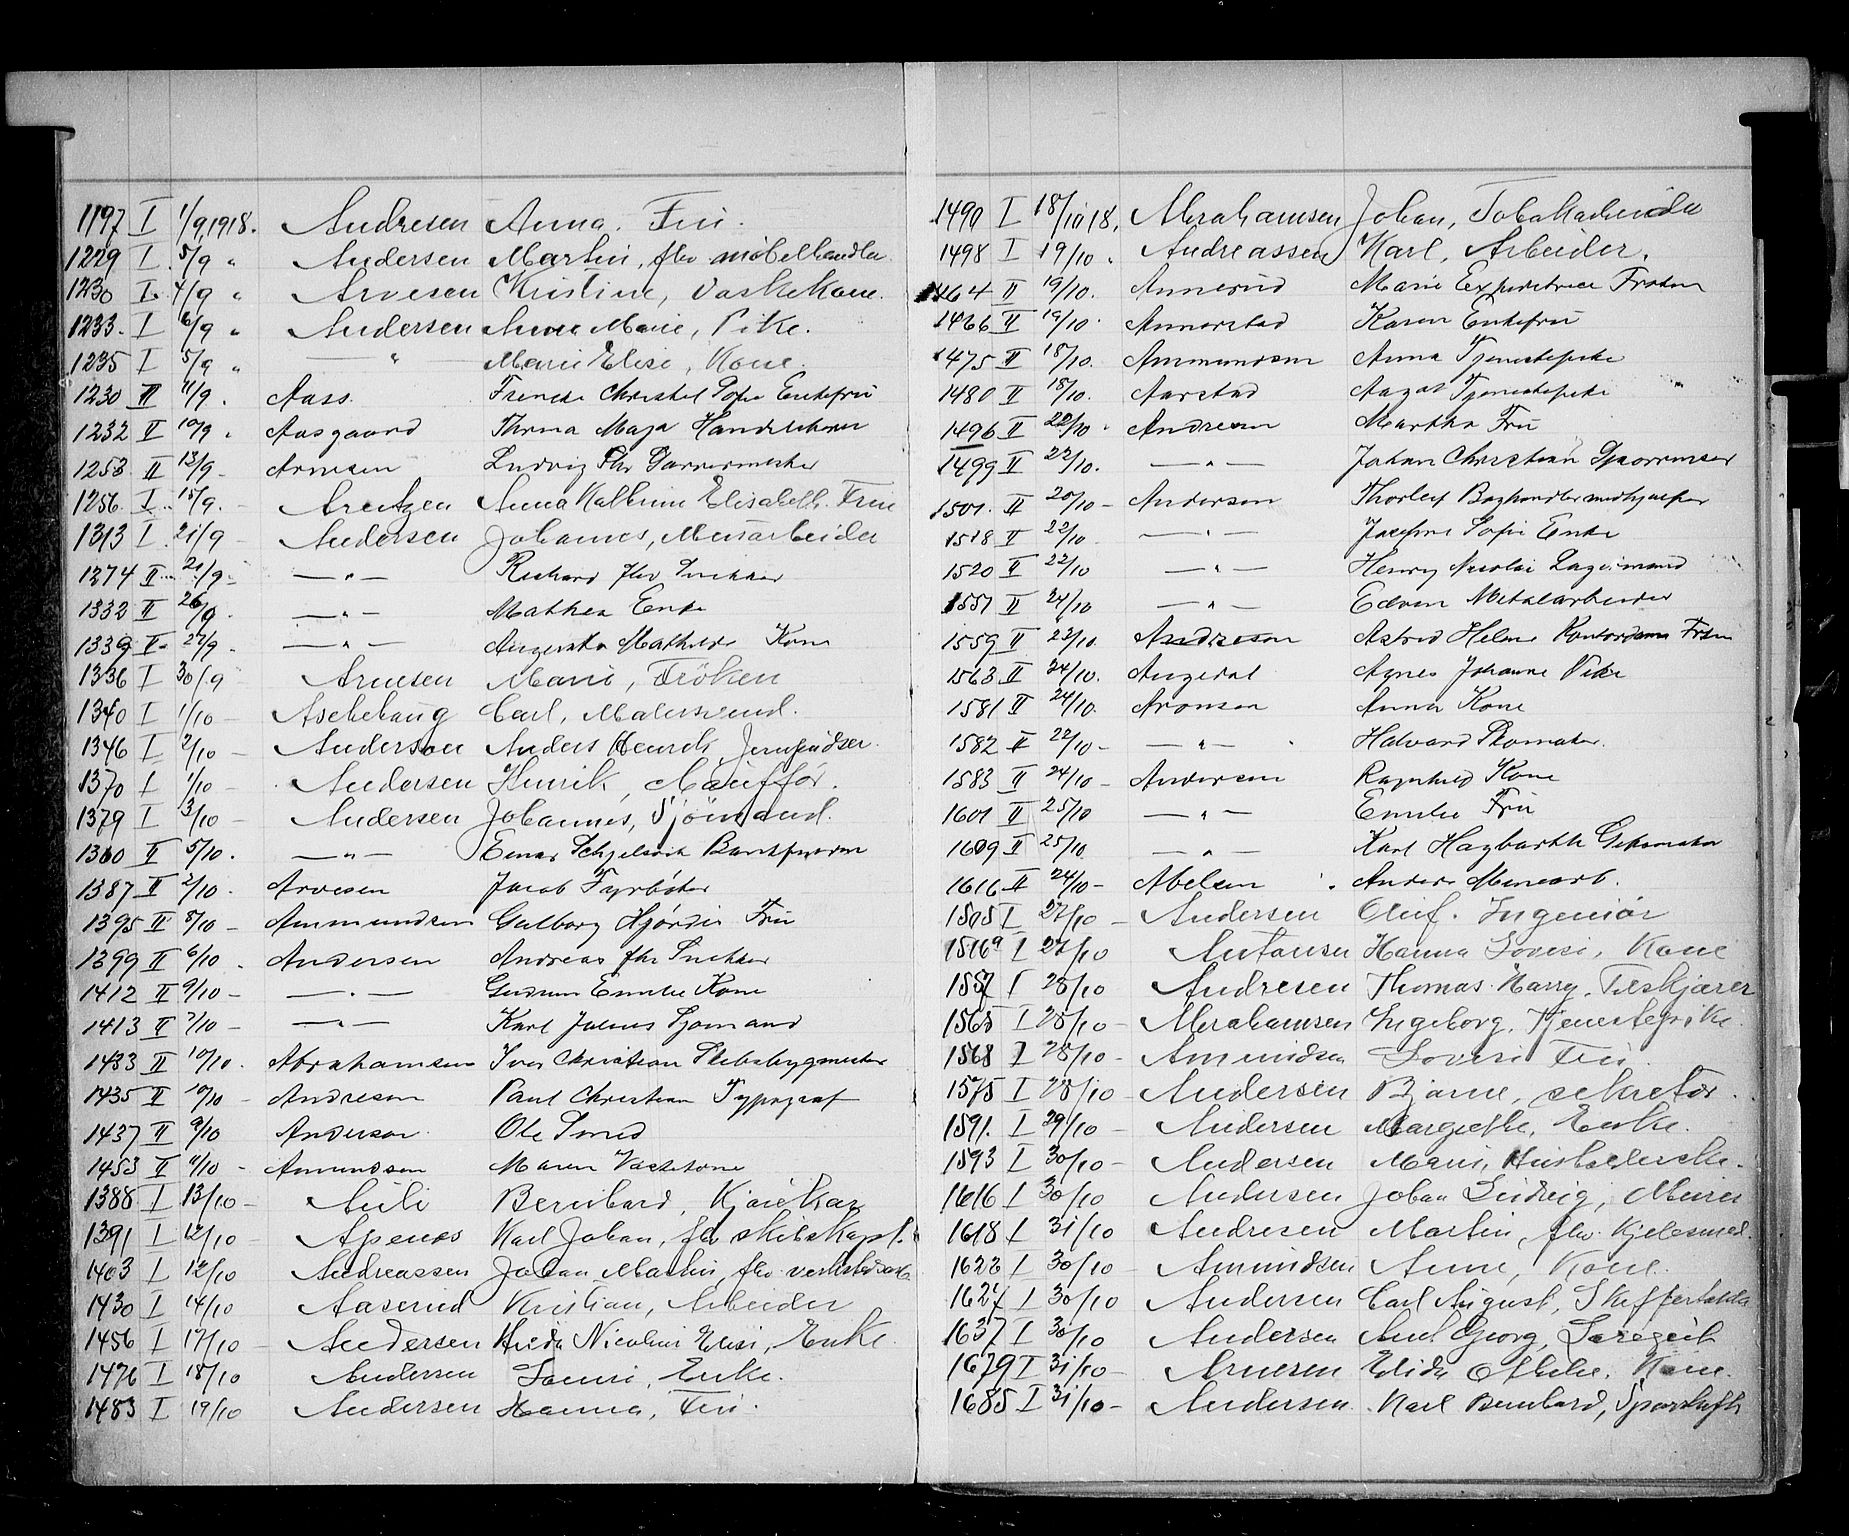 1197 I 1/9 1918. Andresen Anna, Fru.
1229 I 5/9 " Andersen Martin, fhv møbelhandler
1230 I 4/9 " Arvesen Kristine, Vaskekone.
1233. I 6/9 " Andersen Anna Marie, Pike.
1235 I 5/9 " — " Marie Elise, Kone.
1230 II 11/9 . Aass Christel Sofie Enkefru
1232 II 10/9 . Aasgaard Thrina Maja
1253 II 13/9 - Arnesen Ludvig Fhv Garvermester
1256. I 15/9. - Arentzen Anna Kathrine Elisabeth. Frue
1313 I 21/9 - Andersen Johannes, Murarbeider
1274 II 21/9 - — " — Richard fhv Snekker
1332 II 26/9. - — " — Mathea Enke
1339 II 27/9 - — " — Augusta Mathilde Kone
1336 I 30/9 - Arnesen Marie, Fröken
1340 I 1/10 - Aschehaug Carl, Malersvend.
1346 I 2/10 - Anderson Anders Henrik,
1370 I 1/10 - Andersen Henrik,
1379 I 3/10 - Andersen Johannes, Sjömand.
1360 II 5/10. — " — Einar Schjelsvik
1387 II 2/10. Arvesen Jacob Fyrbøter
1395 II 5/10 - Ammundsen Galborg Hjørdis Fru
1399 II 6/10 . Andersen Andreas fhv Snekker
1412 II 9/10 - — " — Gudrun Emilie Kone
1413 II 7/10 - — " — Karl Julius Sjømand
1433 II 10/10. Abrahamsen Iver Christian Skibsbygmester
1435 II 10/10 - Andresen Paul Christian Typograf
1437 II 9/10 Anderson Ole Smed
1453 II 11/10 - Amundsen Maren Vaskekone
1388 I 13/10 - Auli Bernhard, Kjørekar
1391 I 12/10 - Apenes Karl Johan, fhv skibskapt.
1403 I 12/10 Andreassen Johan Martin, fhv. verkstedsarb
1430 I 14/10 Aaserud Kristian, Arbeider
1456 I 17/10 - Andersen Hilda Nicoline Elise, Enke.
1476 I 18/10 Andersen Lovise, Enke.
1483 I 19/10 Andersen Hanna, Fru.
1490 I 18/10 18. Abrahamsen Johan, Tobakarbeider
1498 I 19/10 " Andreassen Karl, Arbeider.
1464 II 19/10. Annerud Marie Expeditrice Frøken
1466 II 19/10. Annerstad Karen Enkefru
1475 II 18/10. Ammundsen Anna Tjenestepike
1480 II 18/10. Aarstad Aagot Tjenestepike
1496 II 22/10 . Andresen Martha Fru
1499 II 22/10. — " — Johan Christian
1501. II 20/10 - Andersen Thorleif
1518 II 22/10 — " — Josefine Sofie Enke
1520 II 22/10 — " — Henry Nicolai Lagermand
1551 II 24/10 — " — Edvin Metalarbeider
1559 II 23/10. Andreson Astrid Helene Kontordame Frøken
1563 II 24/10. Angedal Agnes Johanne Pike
1581 II 24/10. Aronsen Anna Kone
1582 II 22/10 - — " — Halvard Skomaker.
1583 II 24/10 - Andersen Ragnhild Kone
1601 II 25/10 — " — Emilie Fru
1609 II 25/10. — " — Karl Hagbarth
1616 II 24/10 - Abelsen Anders Minearb.
1505 I 27/10 - Andersen Oluf. Ingeniör
1516a I 27/10 Antonsen Hanna Lovise, Kone
1557 I 28/10 Andresen Thomas Harry,
1565 I 28/10 - Abrahamsen Ingeborg, Tjenestepike.
1568 I 28/10 - Amundsen Lovise Fru.
1575 I 28/10 - Andersen Bjarne, sekretær.
1591. I 29/10 - Andersen Margrethe, Enke.
1593 I 30/10 - Andersen Marie, Husholderske.
1616 I 30/10 Andersen Johan Ludvig, Murer
1618 I 31/10 Andresen Martin, fhv. Kjelesmed.
1622 I 30/10 - Amundsen Anne, Kone.
1627 I 30/10 Andersen Carl August,
1637 I 30/10 Andersen Georg,
1679 I 31/10 - Arnesen Elida Othilie. Kone.
1685 I 31/10 - Andersen Karl Bernhard,